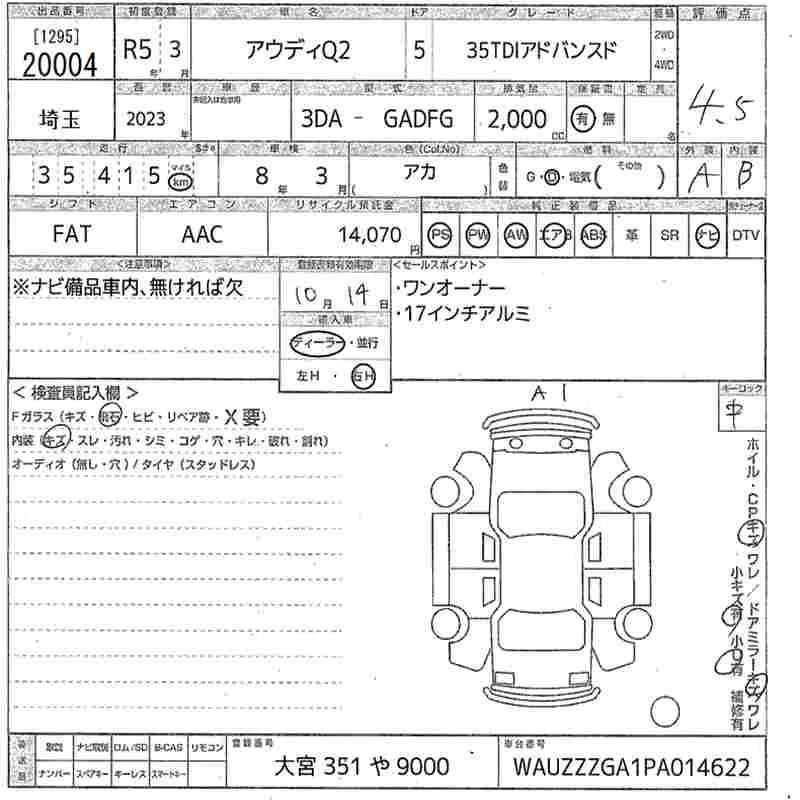 出品番号 初度登録 車名 ドア グレード 評価点
[1295]
20004 R5年 3月 アウディQ2 5 35TDIアドバンスド 2WD・4WD 4.5
車歴 型式 排気量 保証書 定員
埼玉 2023年 3DA - GADFG 2,000cc 有 無 名
走行 車検 色(Col,No) 燃料 外装 内装
35,415 マイル km 8年 3月 アカ ( ) 色替 G・D・電気( その他 ) A B
シフト エアコン リサイクル預託金 純正装備品
FAT AAC 14,070円 PS PW AW エアB ABS 革 SR ナビ DTV
<注意事項> <セールスポイント>
※ナビ備品車内、無ければ欠 10月 14日 ・ワンオーナー
輸入車 ・17インチアルミ
ディーラー・並行
左H・右H
< 検査員記入欄 > A1 キーロック
Fガラス (キズ・飛石・ヒビ・リペア跡・X要) 中
内装 (キズ・スレ・汚れ・シミ・コゲ・穴・キレ・破れ・割れ)
オーディオ (無し・穴) / タイヤ (スタッドレス)
ホイル・CPキズワレ/ドアミラーキズワレ
小キズ有/小U有 補修有
取説 ナビ取説 ロム/SD B-CAS リモコン 登録番号 車台番号
ナンバー スペアキー キーレス スマートキー 大宮 351 や 9000 WAUZZZGA1PA014622